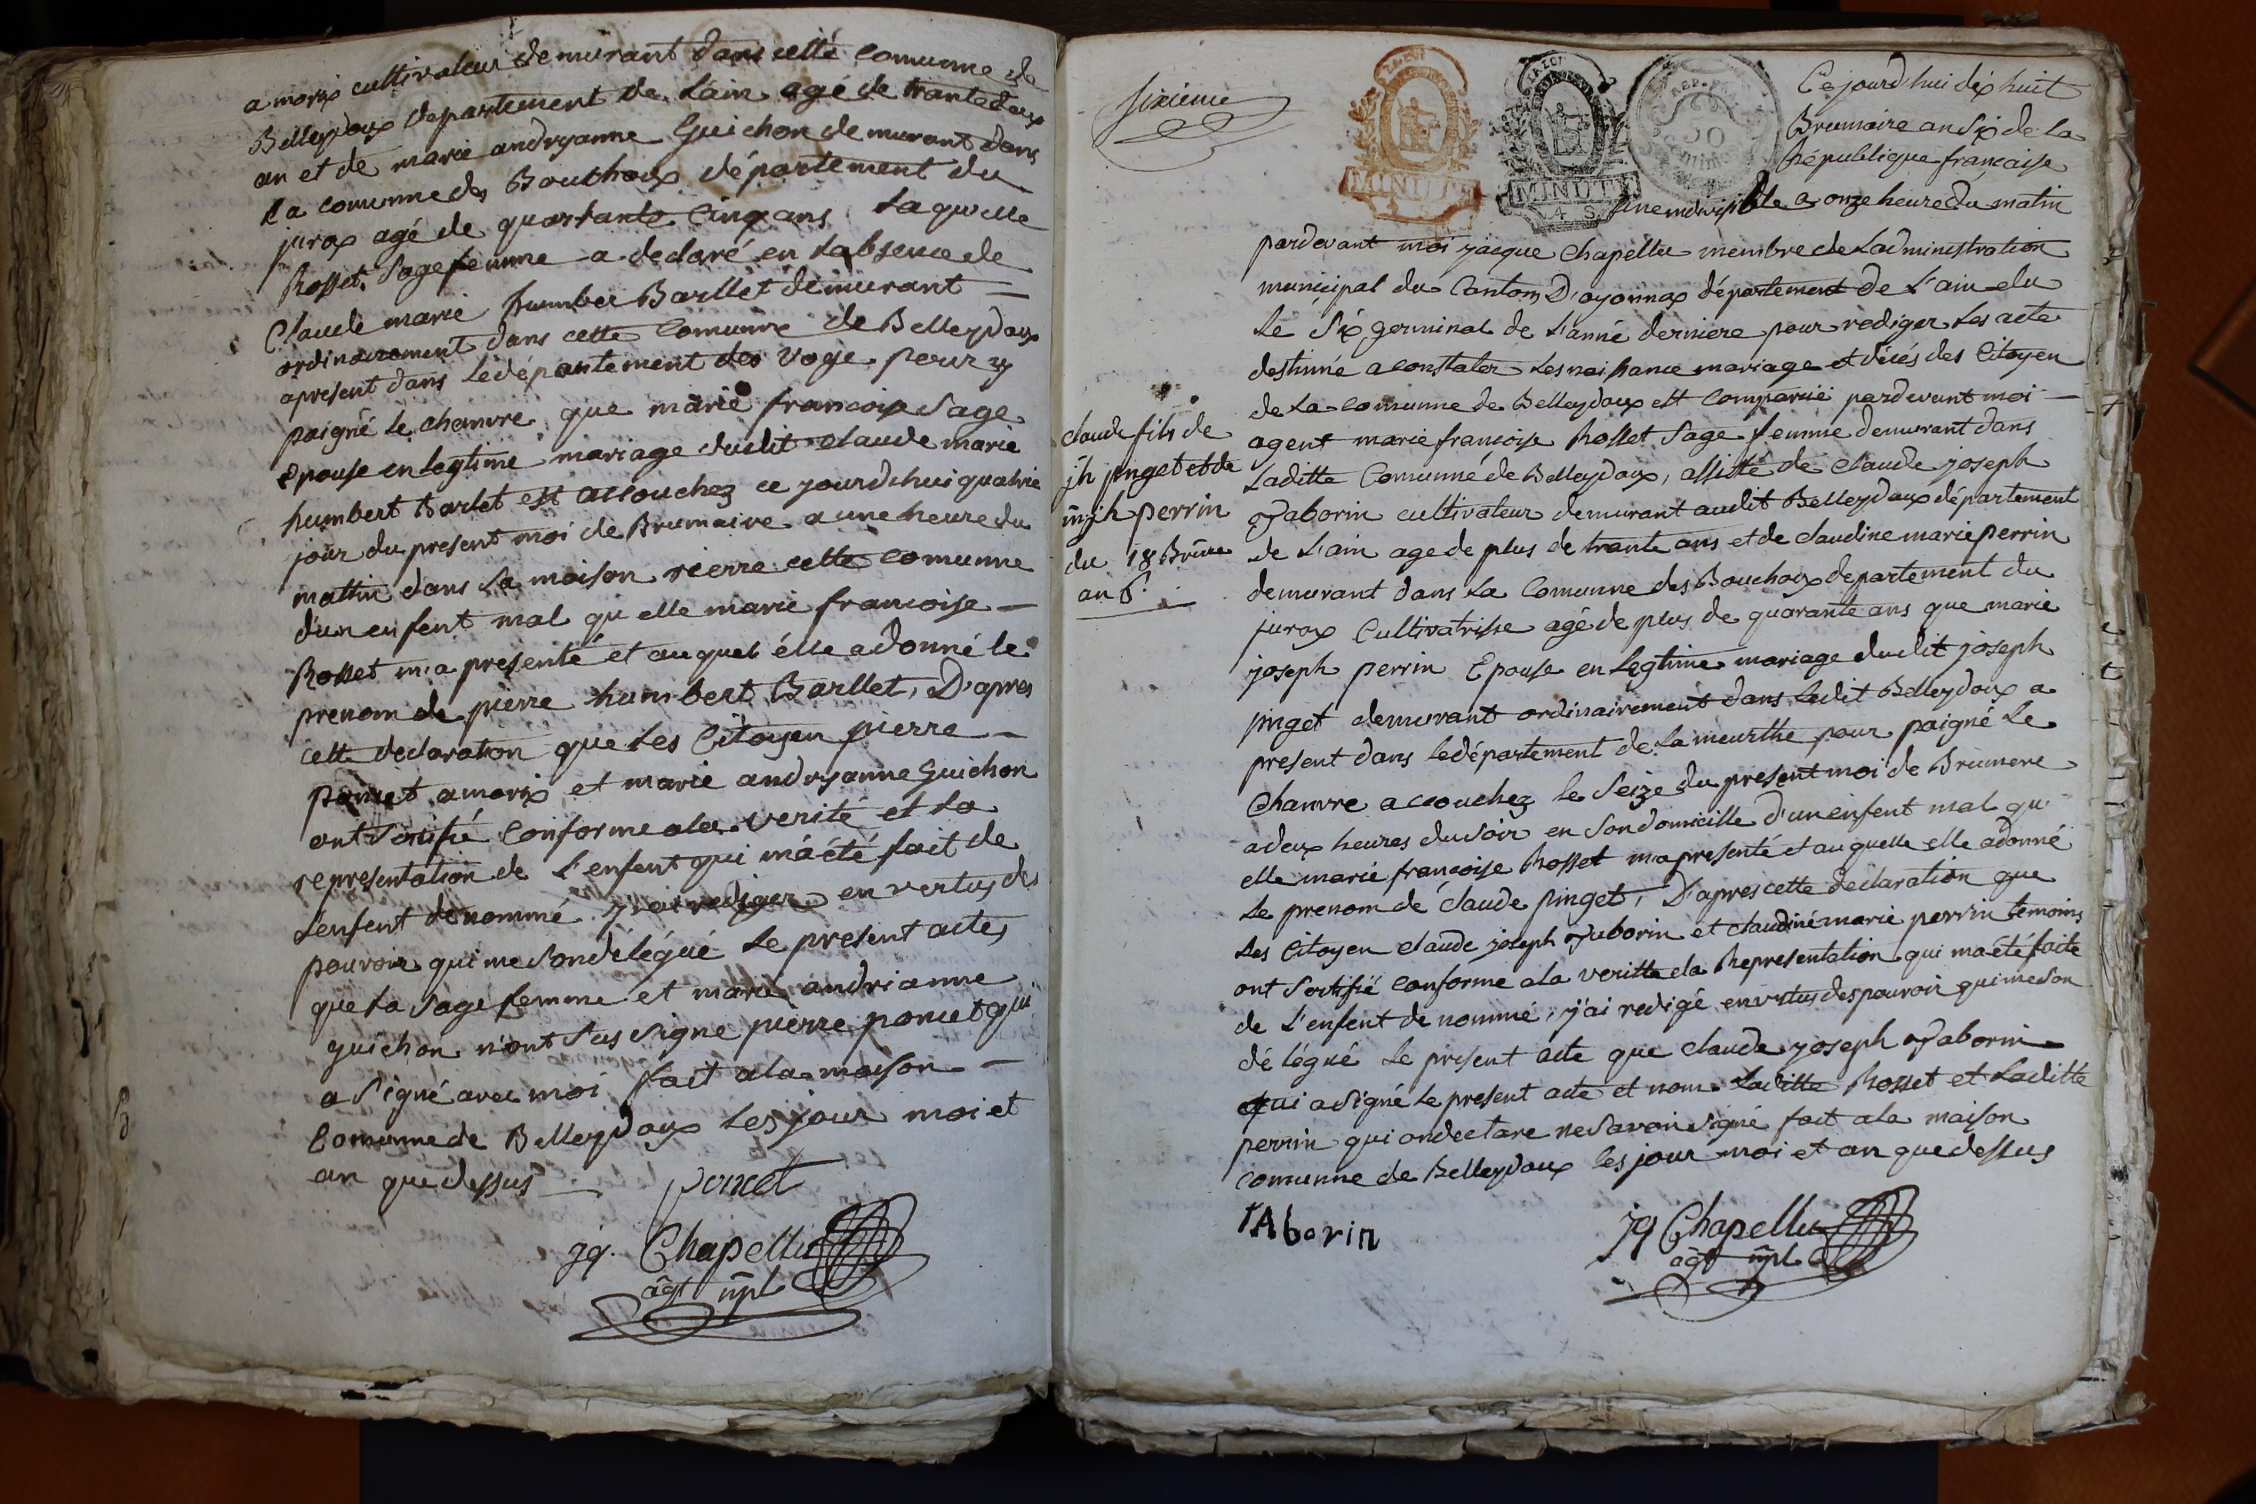 a morix cultivateur demurant dans cette comunne de
Belleydoux departement de Lain agé de trante deux
an et de marie andryanne Guichon demurant dans
La comunne des Bouthoux département du
jurax agé de quarrante Cinq ans Laquelle
Rosset Sage femme a declaré en Labsence de
Claude marie humber Barllet demurant —
ordinairement dans cette Comunne de Belleydoux
apresent dans Ledépartement des Voge pour y
paigné Le chanvre que marie francoise Sage
Epouse en Legtime mariage dudit claude marie
humbert Barlet est accouchez ce yourdhui quatrie
jour du present moi de Brumaire a une heure du
mattin dans La maison rierre cette comunne
d'un enfent mal qu elle marie francoise —
Rosset m'a presenté et auquel élle adonné le
prenom de pierre humbert Barllet, D'apres
cette declaration que Les Citoyen pierre —
poncet amorix et marie andryanne Guichon
ont Sertifié Conforme ala verité et La
representation de L'enfent qui m'a été fait de
L'enfent dénommé y'ai rediger en vertus des
pouvoir qui me Sondélégué Le present actes
que La Sage femme et marie andrianne
guichon n'ont Sus Signe pierre poncet qui
a Signé avec moi fait ala maison —
Comunne de Belleydoux Les jour moi et
an que dessus
poncet
jq. Chapellu
agt mpl
Sixieme
MINUTE
MINUTE
4 S.
REP. FRA.
50
Centimes
Ce jourd'hui dix huit
Brumaire an Six de la
République francaise
une endivisible a onze heure du matin
pardevant moi jacque Chapellu membre de Ladministration
municipal du Canton D'oyonnax département de L'ain elu
Le Six germinal de L'anné derniere pour rediger Les acte
destiné a constater Les naissance mariage et décés des Citoyen
de La comunne de Belleydoux est Comparüe pardevant moi —
agent marie françoise Rosset Sage femme demurant dans
Laditte Comunne de Belleydoux, assitté de Claude joseph
Taborin cultivateur demurant audit Belleydoux département
de L'ain age de plus de trante ans et de claudine marie perrin
demurant dans La Comunne des Bouchoux departement du
jurax Cultivatrisse agé de plus de quarante ans que marie
joseph perrin Epouse en Legtime mariage dudit joseph
pinget demurant ordinairement dans Ledit Belleydoux a
present dans Ledépartement de La meurthe pour paigné Le
Chanvre accouchez le Seize du present moi de Brumere
a deux heures du soir en Son domicille d'un enfent mal qu
elle marie françoise Rosset m'apresenté et auquelle elle adonné
Le prenom dé Claude pinget, D'apres cette declaration que
Les Citoyen claude joseph Taborin et claudine marie perrin temoins
ont Sertifié conforme ala veritte ela Representation qui ma été faite
de L'enfent de nommé, j'ai redigé en vertus des pouvoir qui me Son
délégué Le present acte que claude yoseph Taborin
qui asigné Le present acte et non Laditte Rosset et Laditte
perrin qui ondectare ne Savoir Signé fait ala maison
comunne de Belleydoux les jour moi et an que dessus
claude fils de
jh pinget et de
m jh perrin
du 18 Brure
an 6.
TAborin
Jq Chapellu
agt mpl